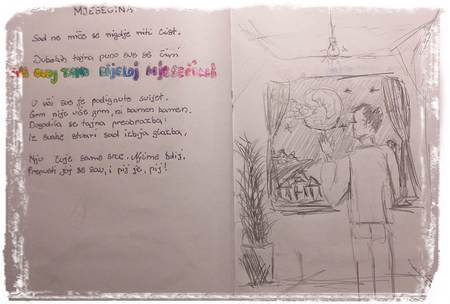 MJESEČINA
Sad ne miče se nigdje niti list.
Dubokih tajna puno sve se čini
U ovoj tako bijeloj mjesečini
U vis sve je podignuto svijet.
Grm nije više grm, ni kamen kamen.
Dogodila se tajna preobrazba:
Iz svake stvari sad izbija glazba,
Nju čuje samo srce. Njime bdij,
Prepusti joj se sav, i pij je, pij!